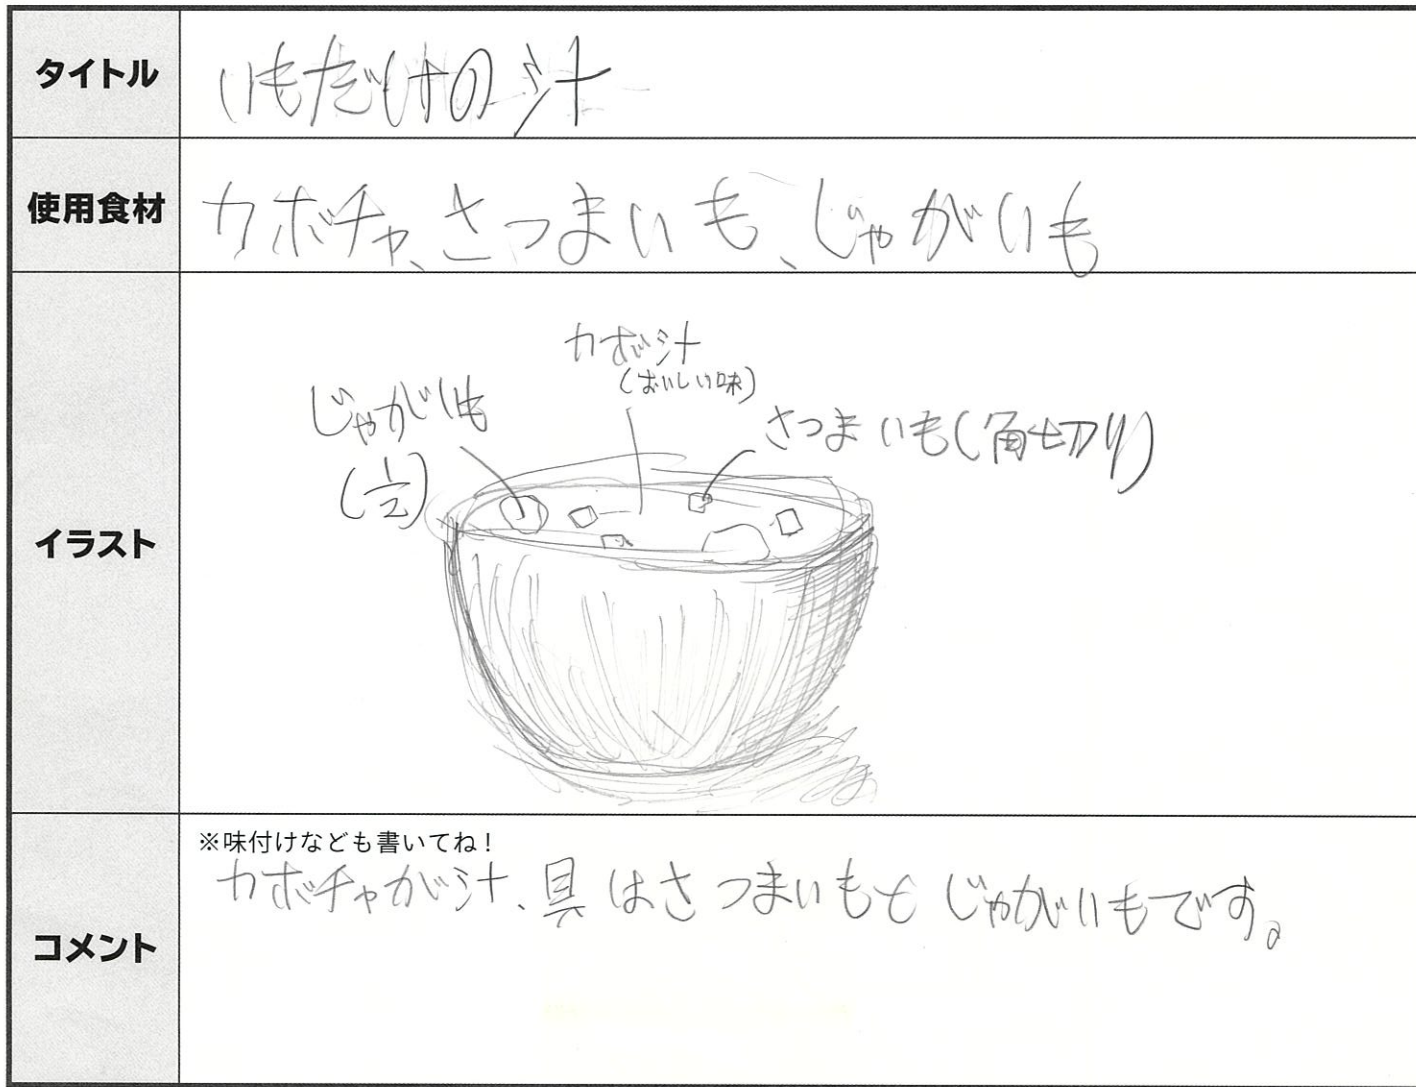 タイトル
いもだけの汁
使用食材
カボチャ、さつまいも、じゃがいも
イラスト
カボ汁
(おいしい味)
じゃがいも
(1/2)
さつまいも(角切り)
コメント
※味付けなども書いてね!
カボチャが汁、具はさつまいもとじゃがいもです。